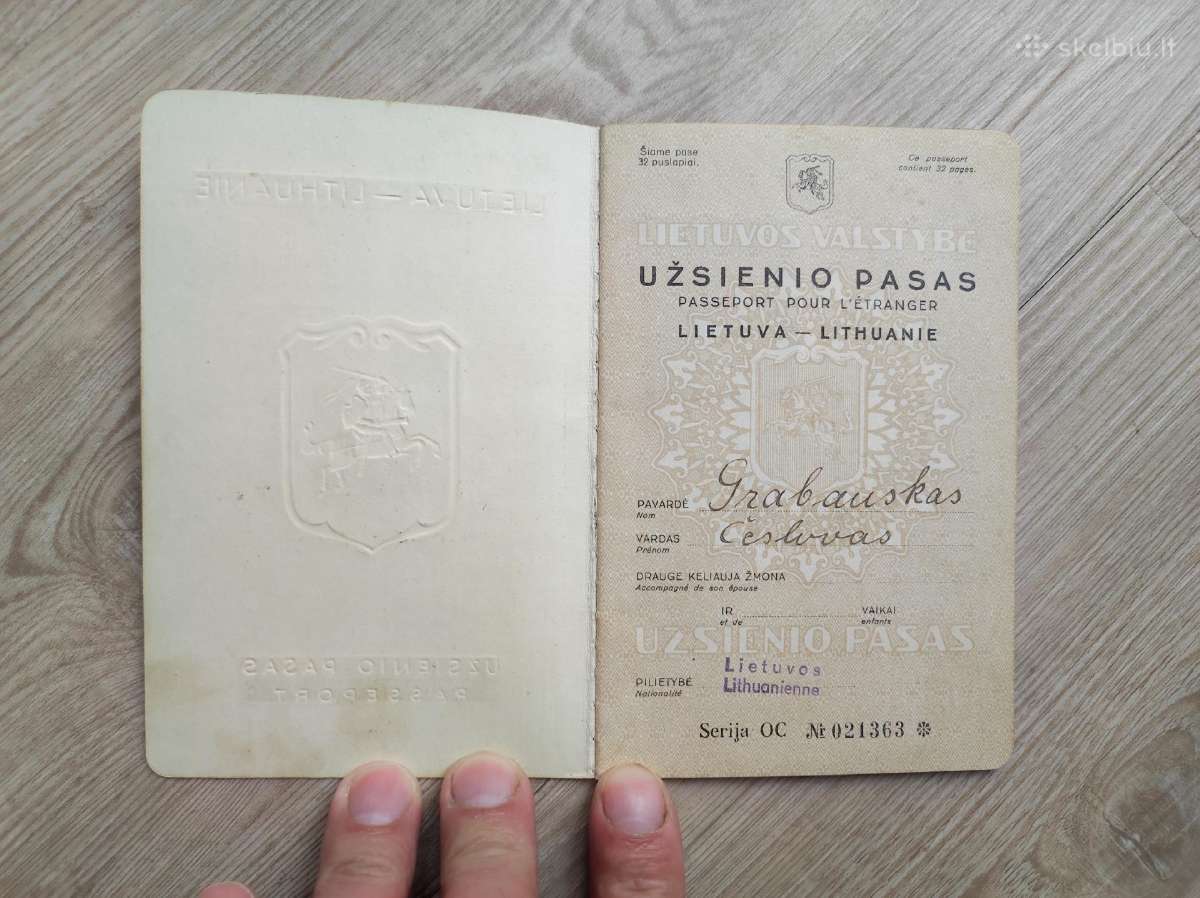 skelbiu.lt
LIETUVA — LITHUANIE
UŽSIENIO PASAS
PASSEPORT
Šiame pase
32 puslapiai.
Ce passeport
contient 32 pages.
LIETUVOS VALSTYBĖ
UŽSIENIO PASAS
PASSEPORT POUR L'ÉTRANGER
LIETUVA — LITHUANIE
PAVARDĖ Grabauskas
Nom
VARDAS Česlovas
Prénom
DRAUGE KELIAUJA ŽMONA
Accompagné de son épouse
IR VAIKAI
et de enfants
UŽSIENIO PASAS
Lietuvos
PILIETYBĖ Lithuanienne
Nationalité
Serija OC № 021363 ❊